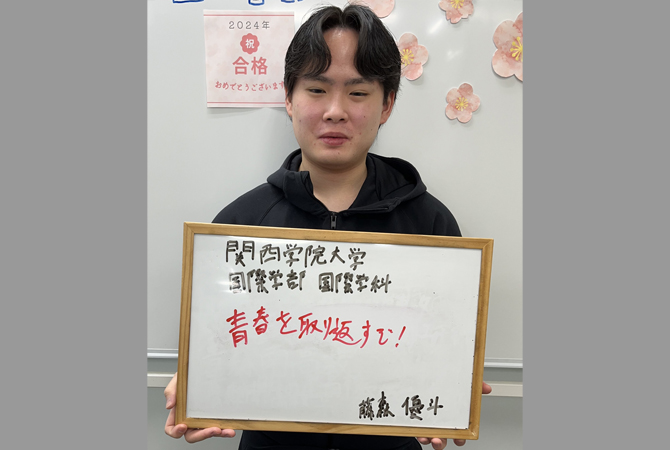 2024年
祝
合格
おめでとうございます
関西学院大学
国際学部 国際学科
青春を取り返すぞ!
藤森 優斗